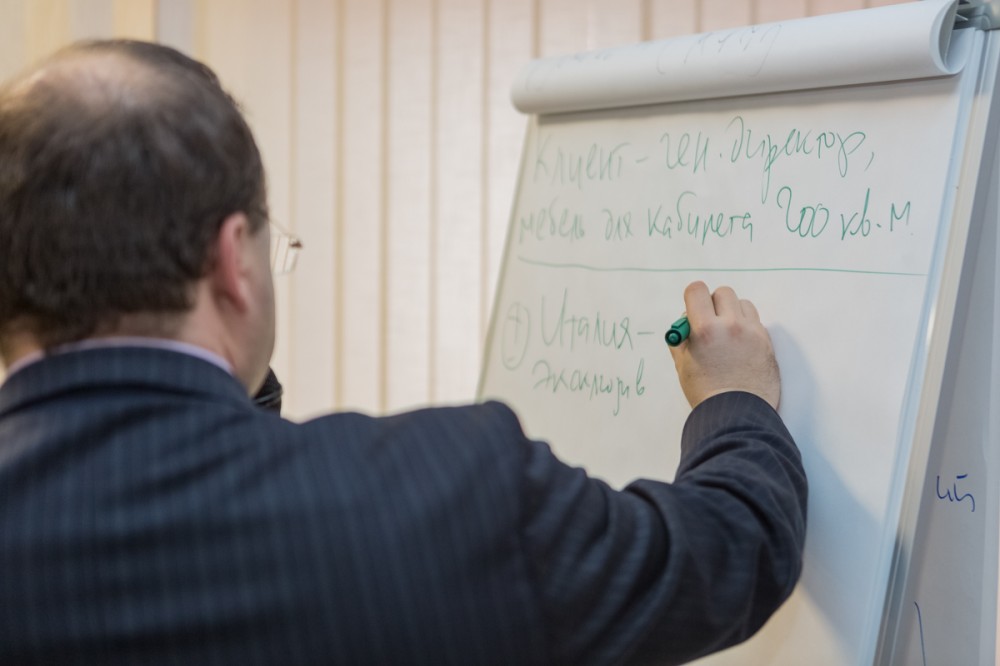 Клиент - ген. директор,
мебель для кабинета 200 кв. м
+ Италия -
эксклюзив
ий